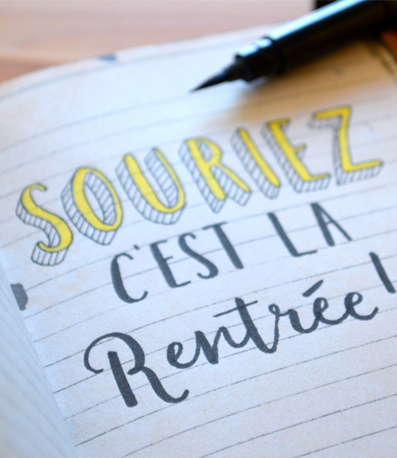 SOURIEZ
C'EST LA
Rentrée!